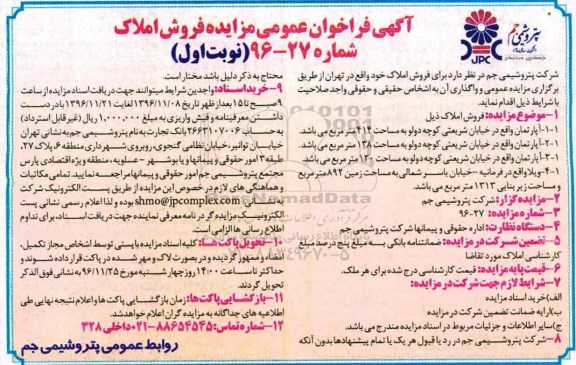 آگهی فراخوان عمومی مزایده فروش املاک
شماره ۲۷-۹۶ (نوبت اول)
پتروشیمی جم
JPC
شرکت پتروشیمی جم در نظر دارد برای فروش املاک خود واقع در تهران از طریق
برگزاری مزایده عمومی و واگذاری آن به اشخاص حقیقی و حقوقی واجد صلاحیت
با شرایط ذیل اقدام نماید.
۱-موضوع مزایده: فروش املاک ذیل
۱-۱-آپارتمان واقع در خیابان شریعتی کوچه دولو به مساحت ۴۱۴ متر مربع می باشد.
۲-۱-آپارتمان واقع در خیابان شریعتی کوچه دولو به مساحت ۱۳۸ متر مربع می باشد.
۳-۱-آپارتمان واقع در خیابان شریعتی کوچه دولو به مساحت ۱۴۰ متر مربع می باشد.
۴-۱-ویلا واقع در فرمانیه -خیابان یاسر شمالی به مساحت زمین ۸۹۲ متر مربع
و مساحت زیر بنایی ۱۳۱۳ متر مربع می باشد.
۲-مزایده گزار: شرکت پتروشیمی جم
۳-شماره مزایده: ۲۷-۹۶
۴-دستگاه نظارت: اداره حقوقی و پیمانها شرکت پتروشیمی جم
۵-تضمین شرکت در مزایده: ضمانتنامه بانکی به مبلغ پنج درصد مبلغ
کارشناسی املاک مورد تقاضا
۶-قیمت پایه مزایده: قیمت کارشناسی درج شده برای هر ملک.
۷-شرایط لازم جهت شرکت در مزایده:
الف)خرید اسناد مزایده
ب)ارایه ضمانت تضمین شرکت در مزایده
ج)سایر اطلاعات و جزئیات مربوط در اسناد مزایده مندرج می باشد.
۸-شرکت پتروشیمی جم در رد یا قبول هر یک یا تمام پیشنهادها بدون آنکه
محتاج به ذکر دلیل باشد مختار است.
۹-خرید اسناد: واجدین شرایط میتوانند جهت دریافت اسناد مزایده از ساعت
۹ صبح تا ۱۵ بعد از ظهر تاریخ ۱۳۹۶/۱۱/۰۸ لغایت ۱۳۹۶/۱۱/۲۱ با در دست
داشتن معرفینامه و فیش واریزی به مبلغ ۱,۰۰۰,۰۰۰ ریال (غیر قابل استرداد)
به حساب ۲۶۶۳۱۰۷۰۰۶ بانک تجارت به نام پتروشیمی جم به نشانی تهران
خیابان توانیر، خیابان نظامی گنجوی، روبروی شهرداری منطقه ۶ پلاک ۲۷،
طبقه ۳ امور حقوقی و پیمانها و یا بوشهر -عسلویه، منطقه ویژه اقتصادی پارس
مجتمع پتروشیمی جم امور حقوقی و پیمانها مراجعه نمایید. تمامی مکاتبات
و هماهنگی های لازم در خصوص این مزایده از طریق پست الکترونیک شرکت
shmo@jpcomplex.com بوده و لذا اعلام رسمی نشانی پست
الکترونیک مزایده گر در نامه معرفی نماینده جهت دریافت اسناد، برای تداوم
اطلاع رسانی ها الزامی است.
۱۰-تحویل پاکت ها: کلیه اسناد مزایده بایستی توسط اشخاص مجاز تکمیل،
امضاء و ممهور گردیده و در بصورت لاک و مهر شده در پاکت قرار داده شوند و
حداکثر تا ساعت ۱۴:۰۰ روز چهارشنبه مورخ ۹۶/۱۱/۲۵ به نشانی فوق الذکر
تحویل گردند.
۱۱-بازگشایی پاکت ها: زمان بازگشایی پاکت ها و اعلام نتیجه نهایی طی
اطلاعیه های جداگانه به مزایده گران اعلام خواهد شد.
۱۲-شماره تماس: ۸۸۶۵۴۵۴۵-۰۲۱ داخلی ۳۲۸
روابط عمومی پتروشیمی جم